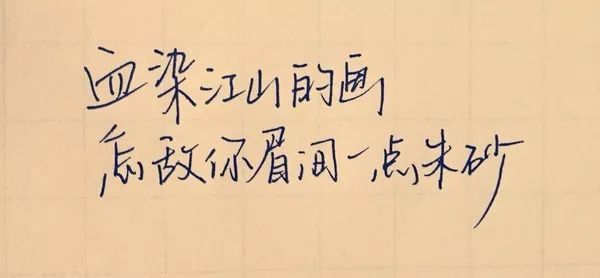 血染江山的画
怎敌你眉间一点朱砂